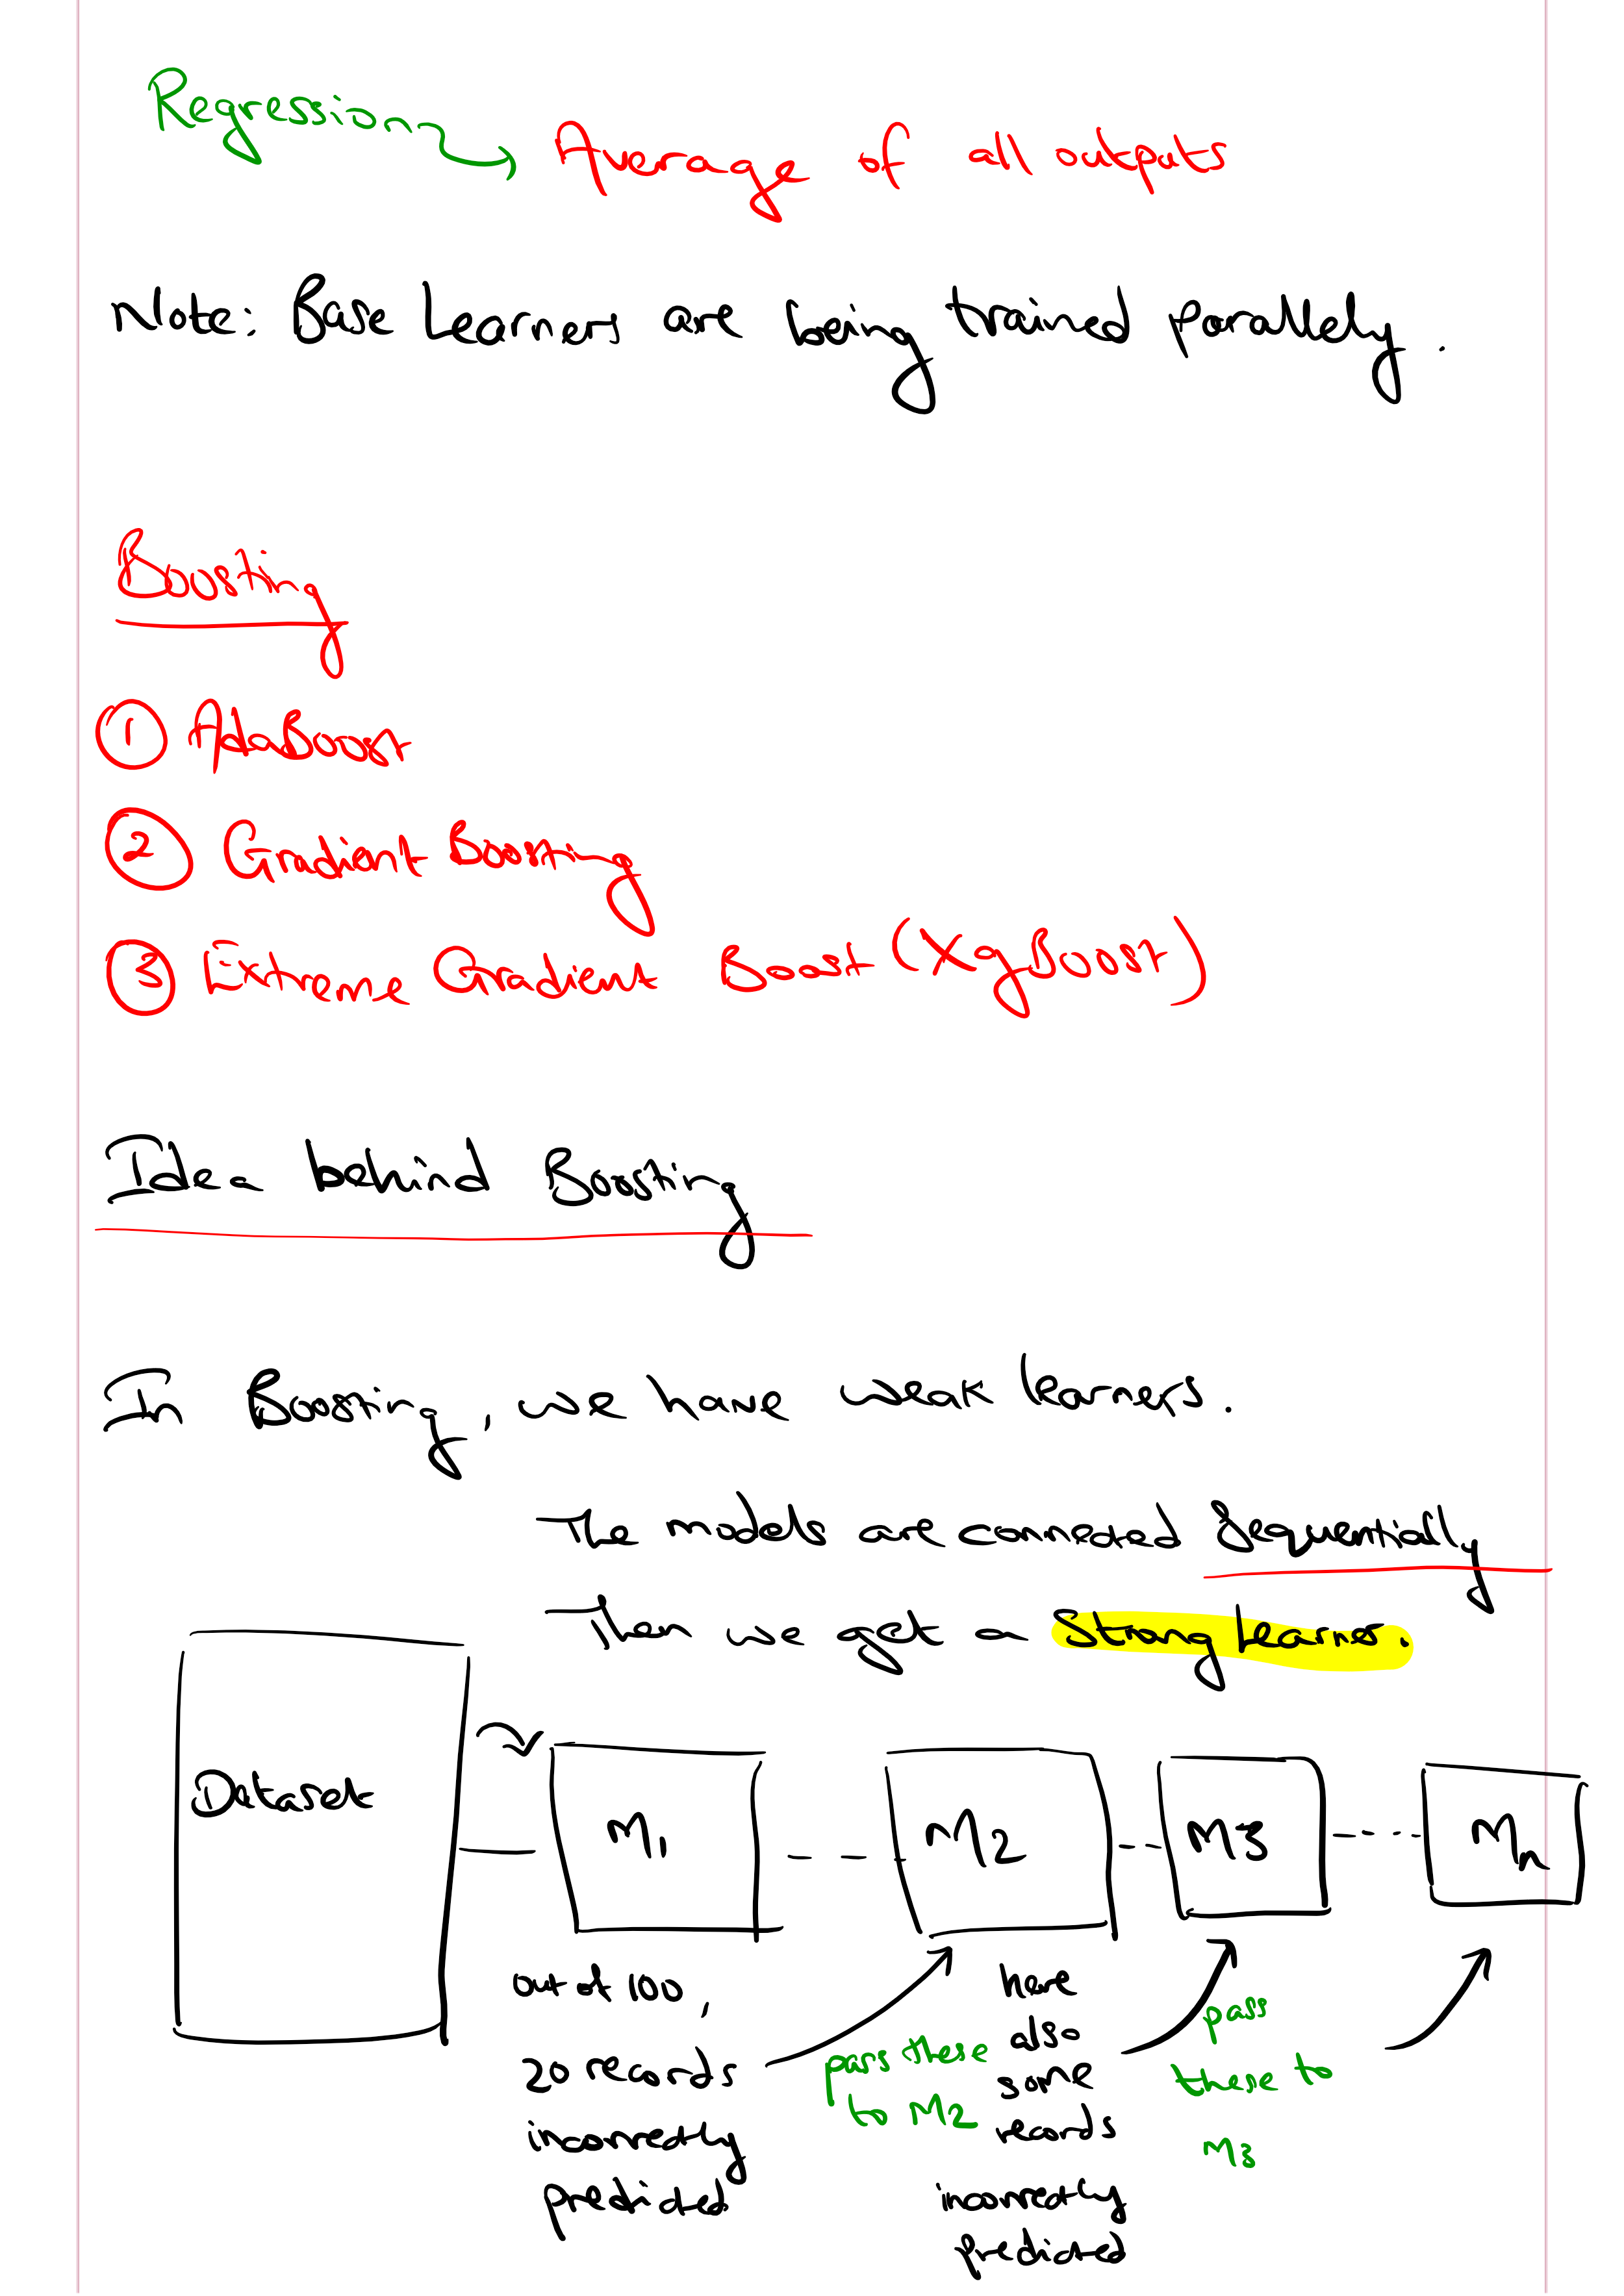 Regression → Average of all outputs
Note: Base Learners are being trained parallely.
Boosting
① AdaBoost
② Gradient Boosting
③ Extreme Gradient Boost (XgBoost)
Idea behind Boosting
In Boosting, we have weak learners.
The models are connected Sequentially
Then we get a Strong Learner.
Dataset
M1
M2
M3
Mn
out of 100,
20 records
incorrectly
predicted
pass these
to M2
here
also
some
records
incorrectly
predicted
pass
these to
M3